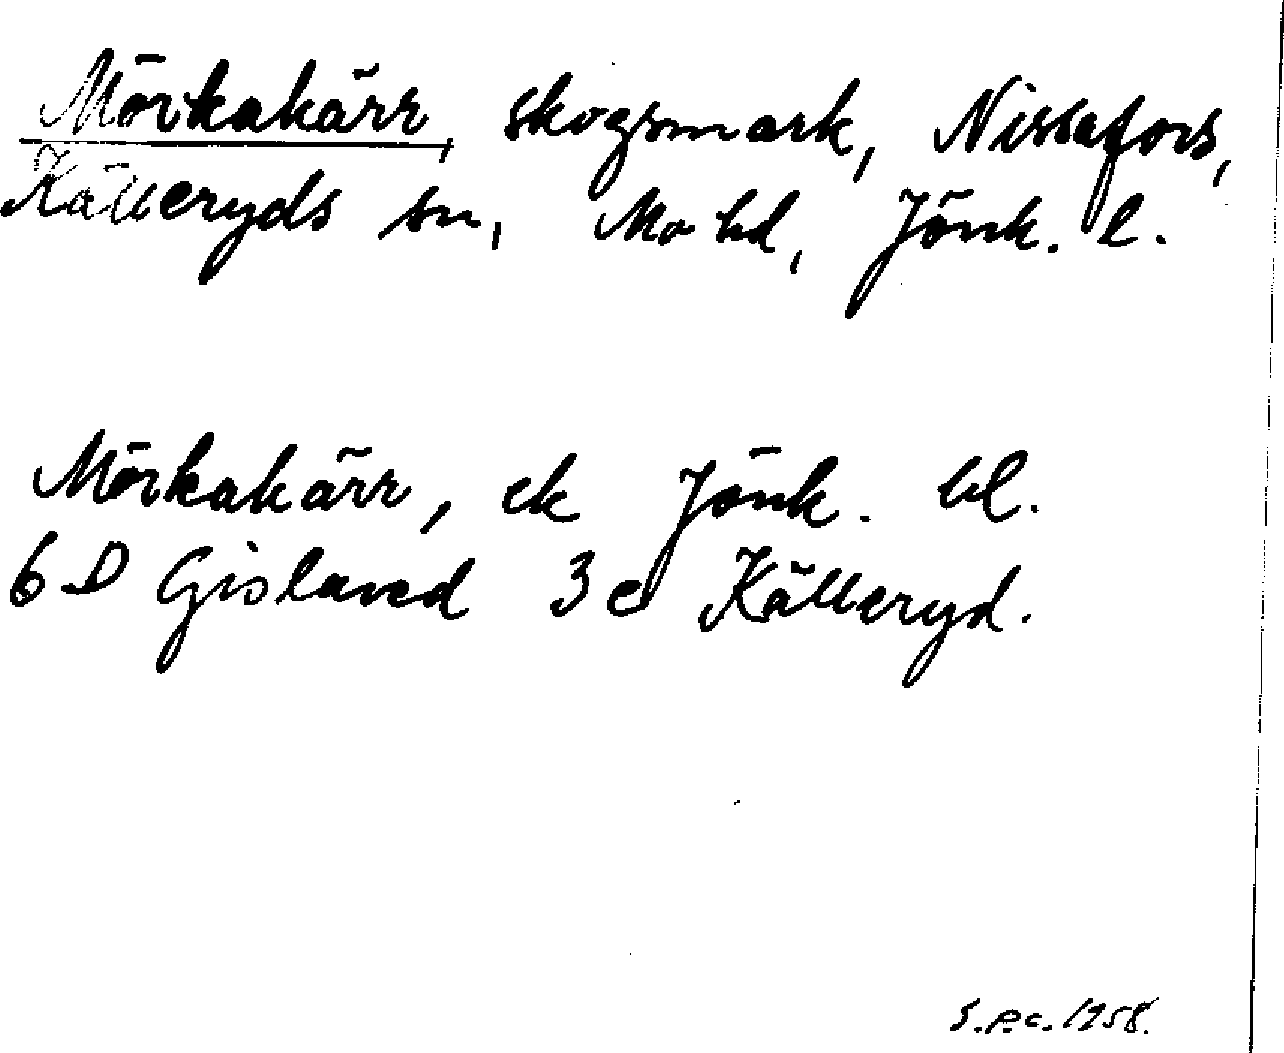 Mörkakärr, skogsmark, Nissafors,
Källeryds sn, Mo hd, Jönk. l.
Mörkakärr, ek Jönk. bl.
6 D Gislaved 3 e Källeryd.
S.P.C. 1958.